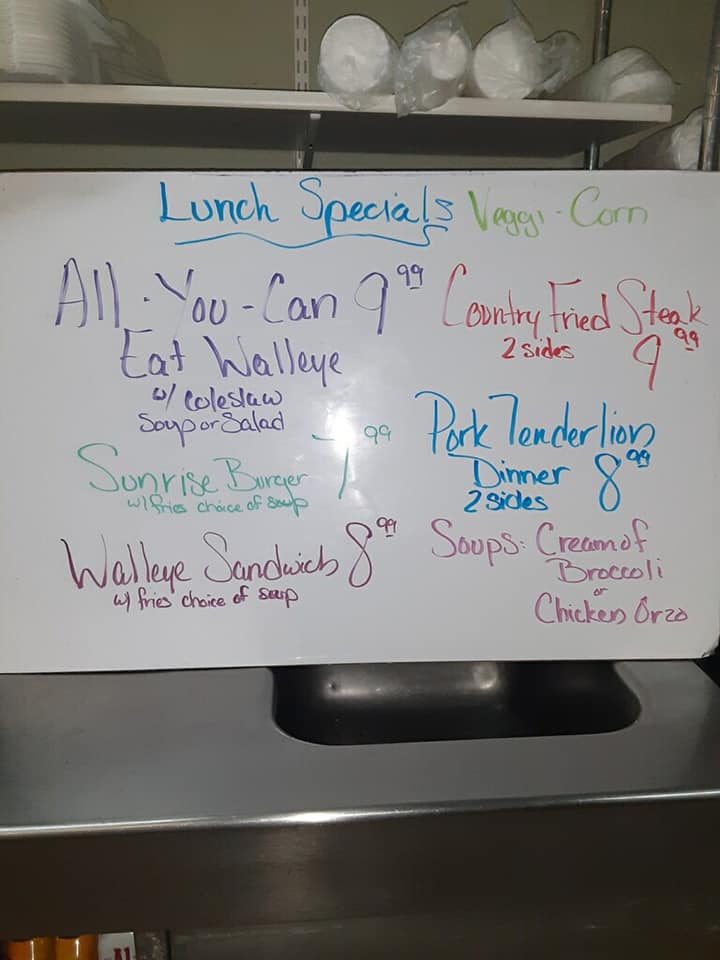 Lunch Specials
Veggi - Corn
All-You-Can 9.99
Eat Walleye
w/ Coleslaw
Soup or Salad
Sunrise Burger 7.99
w/ fries choice of soup
Walleye Sandwich 8.99
w/ fries choice of soup
Country Fried Steak
2 sides 9.99
Pork Tenderlion
Dinner 8.99
2 sides
Soups: Cream of
Broccoli
or
Chicken Orzo
A1